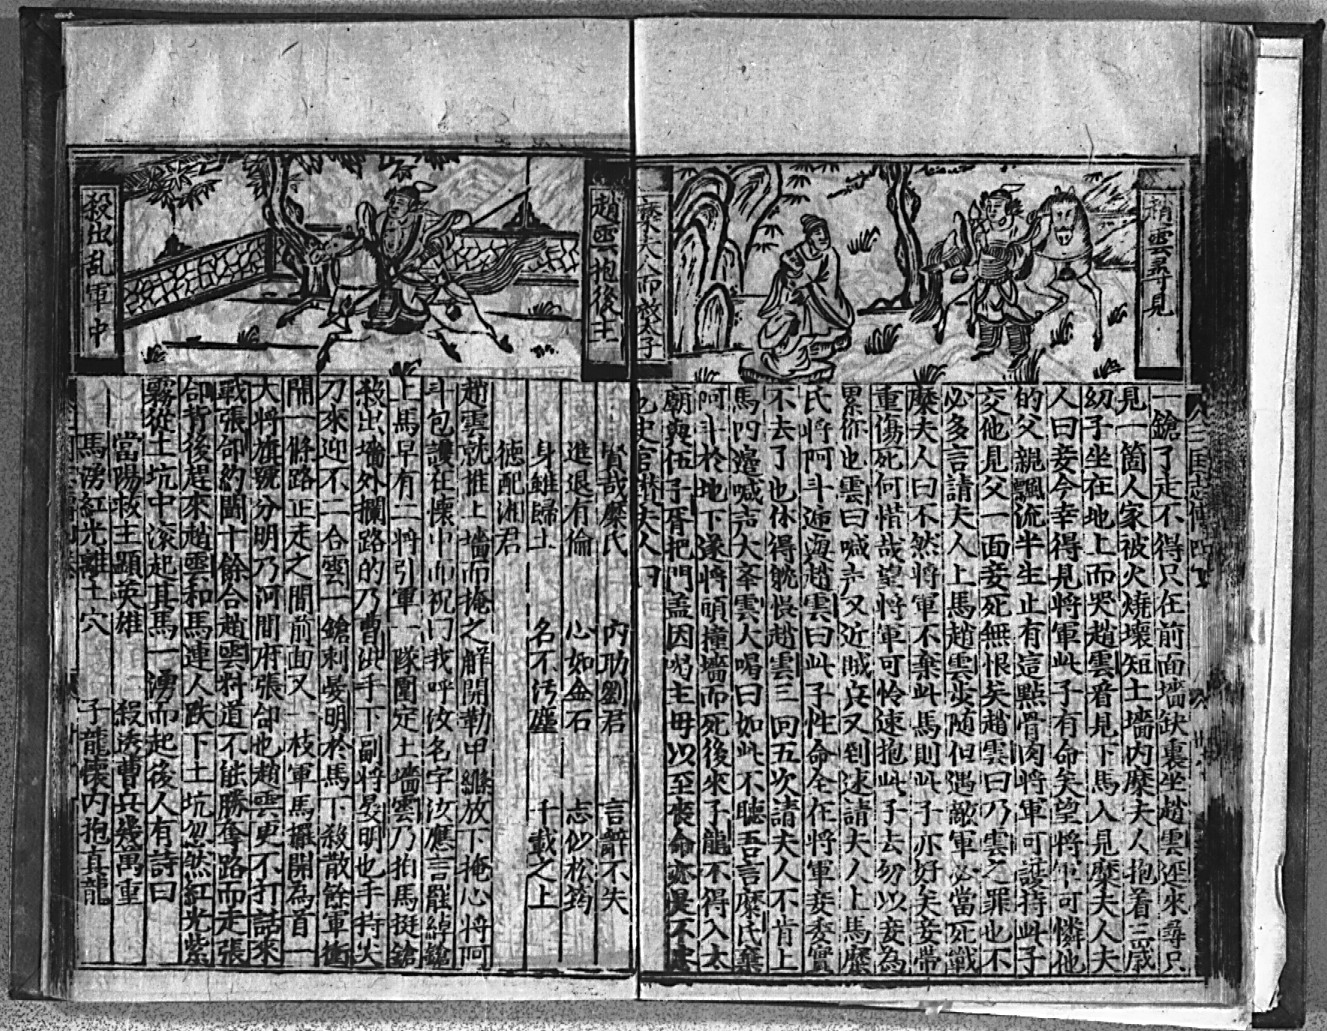 趙雲尋見
糜夫人而救太子
一鎗了走不得只在前面墻缺裏坐趙雲逕來尋只
見一箇人家被火燒壞短土墻內糜夫人抱着三歲
幼子坐在地上而哭趙雲看見下馬入見糜夫人夫
人曰妾今幸得見將軍此子有命矣望將軍可憐他
的父親飄流半生止有這點骨肉將軍可護持此子
交他見父一面妾死無恨矣趙雲曰乃雲之罪也不
必多言請夫人上馬趙雲步隨但遇敵軍必當死戰
糜夫人曰不然將軍不棄此馬則此子亦好矣妾帶
重傷死何惜哉望將軍可怜速抱此子去勿以妾為
累你也雲曰喊声又近賊兵又到速請夫人上馬糜
氏將阿斗逓與趙雲曰此子性命全在將軍妾委實
不去了也休得躭悞趙雲三回五次請夫人不肯上
馬四邊喊声大夆雲大喝曰如此不聽吾言糜氏棄
阿斗於地下遂將頭撞墻而死後來子龍不得入太
廟與伍子胥把門盖因喝主母以至喪命亦是不
也史官讃夫人曰
趙雲抱後主
殺出乱軍中
賢哉糜氏 內助劉君 言辭不失
進退有倫 心如金石 志似松筠
身雖歸土 名不汚塵 千載之上
德配湘君
趙雲就推上墻而掩之解開勒甲縧放下掩心將阿
斗包護在懷中而祝曰我呼汝名字汝應言罷綽鎗
上馬早有二將引軍一隊圍定土墻雲乃拍馬挺鎗
殺出墻外攔路的乃曹洪手下副將晏明也手持尖
刀來迎不二合雲一鎗刺晏明於馬下殺散餘軍衝
開一條路正走之間前面又一枝軍馬擺開為首一
大將旗號分明乃河間府張郃也趙雲更不打話來
戰張郃約鬪十餘合趙雲料道不能勝奪路而走張
郃背後趕來趙雲和馬連人跌下土坑忽然紅光紫
霧從土坑中滚起其馬一湧而起後人有詩曰
當陽救主顯英雄 殺透曹兵幾萬重
一馬湧紅光離土穴 子龍懷內抱真龍